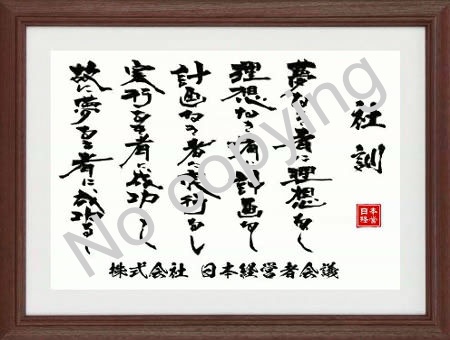 社訓
夢なき者に理想なし
理想なき者に計画なし
計画なき者に実行なし
実行なき者に成功なし
故に夢なき者に成功なし
株式会社 日本経営者会議
No copying